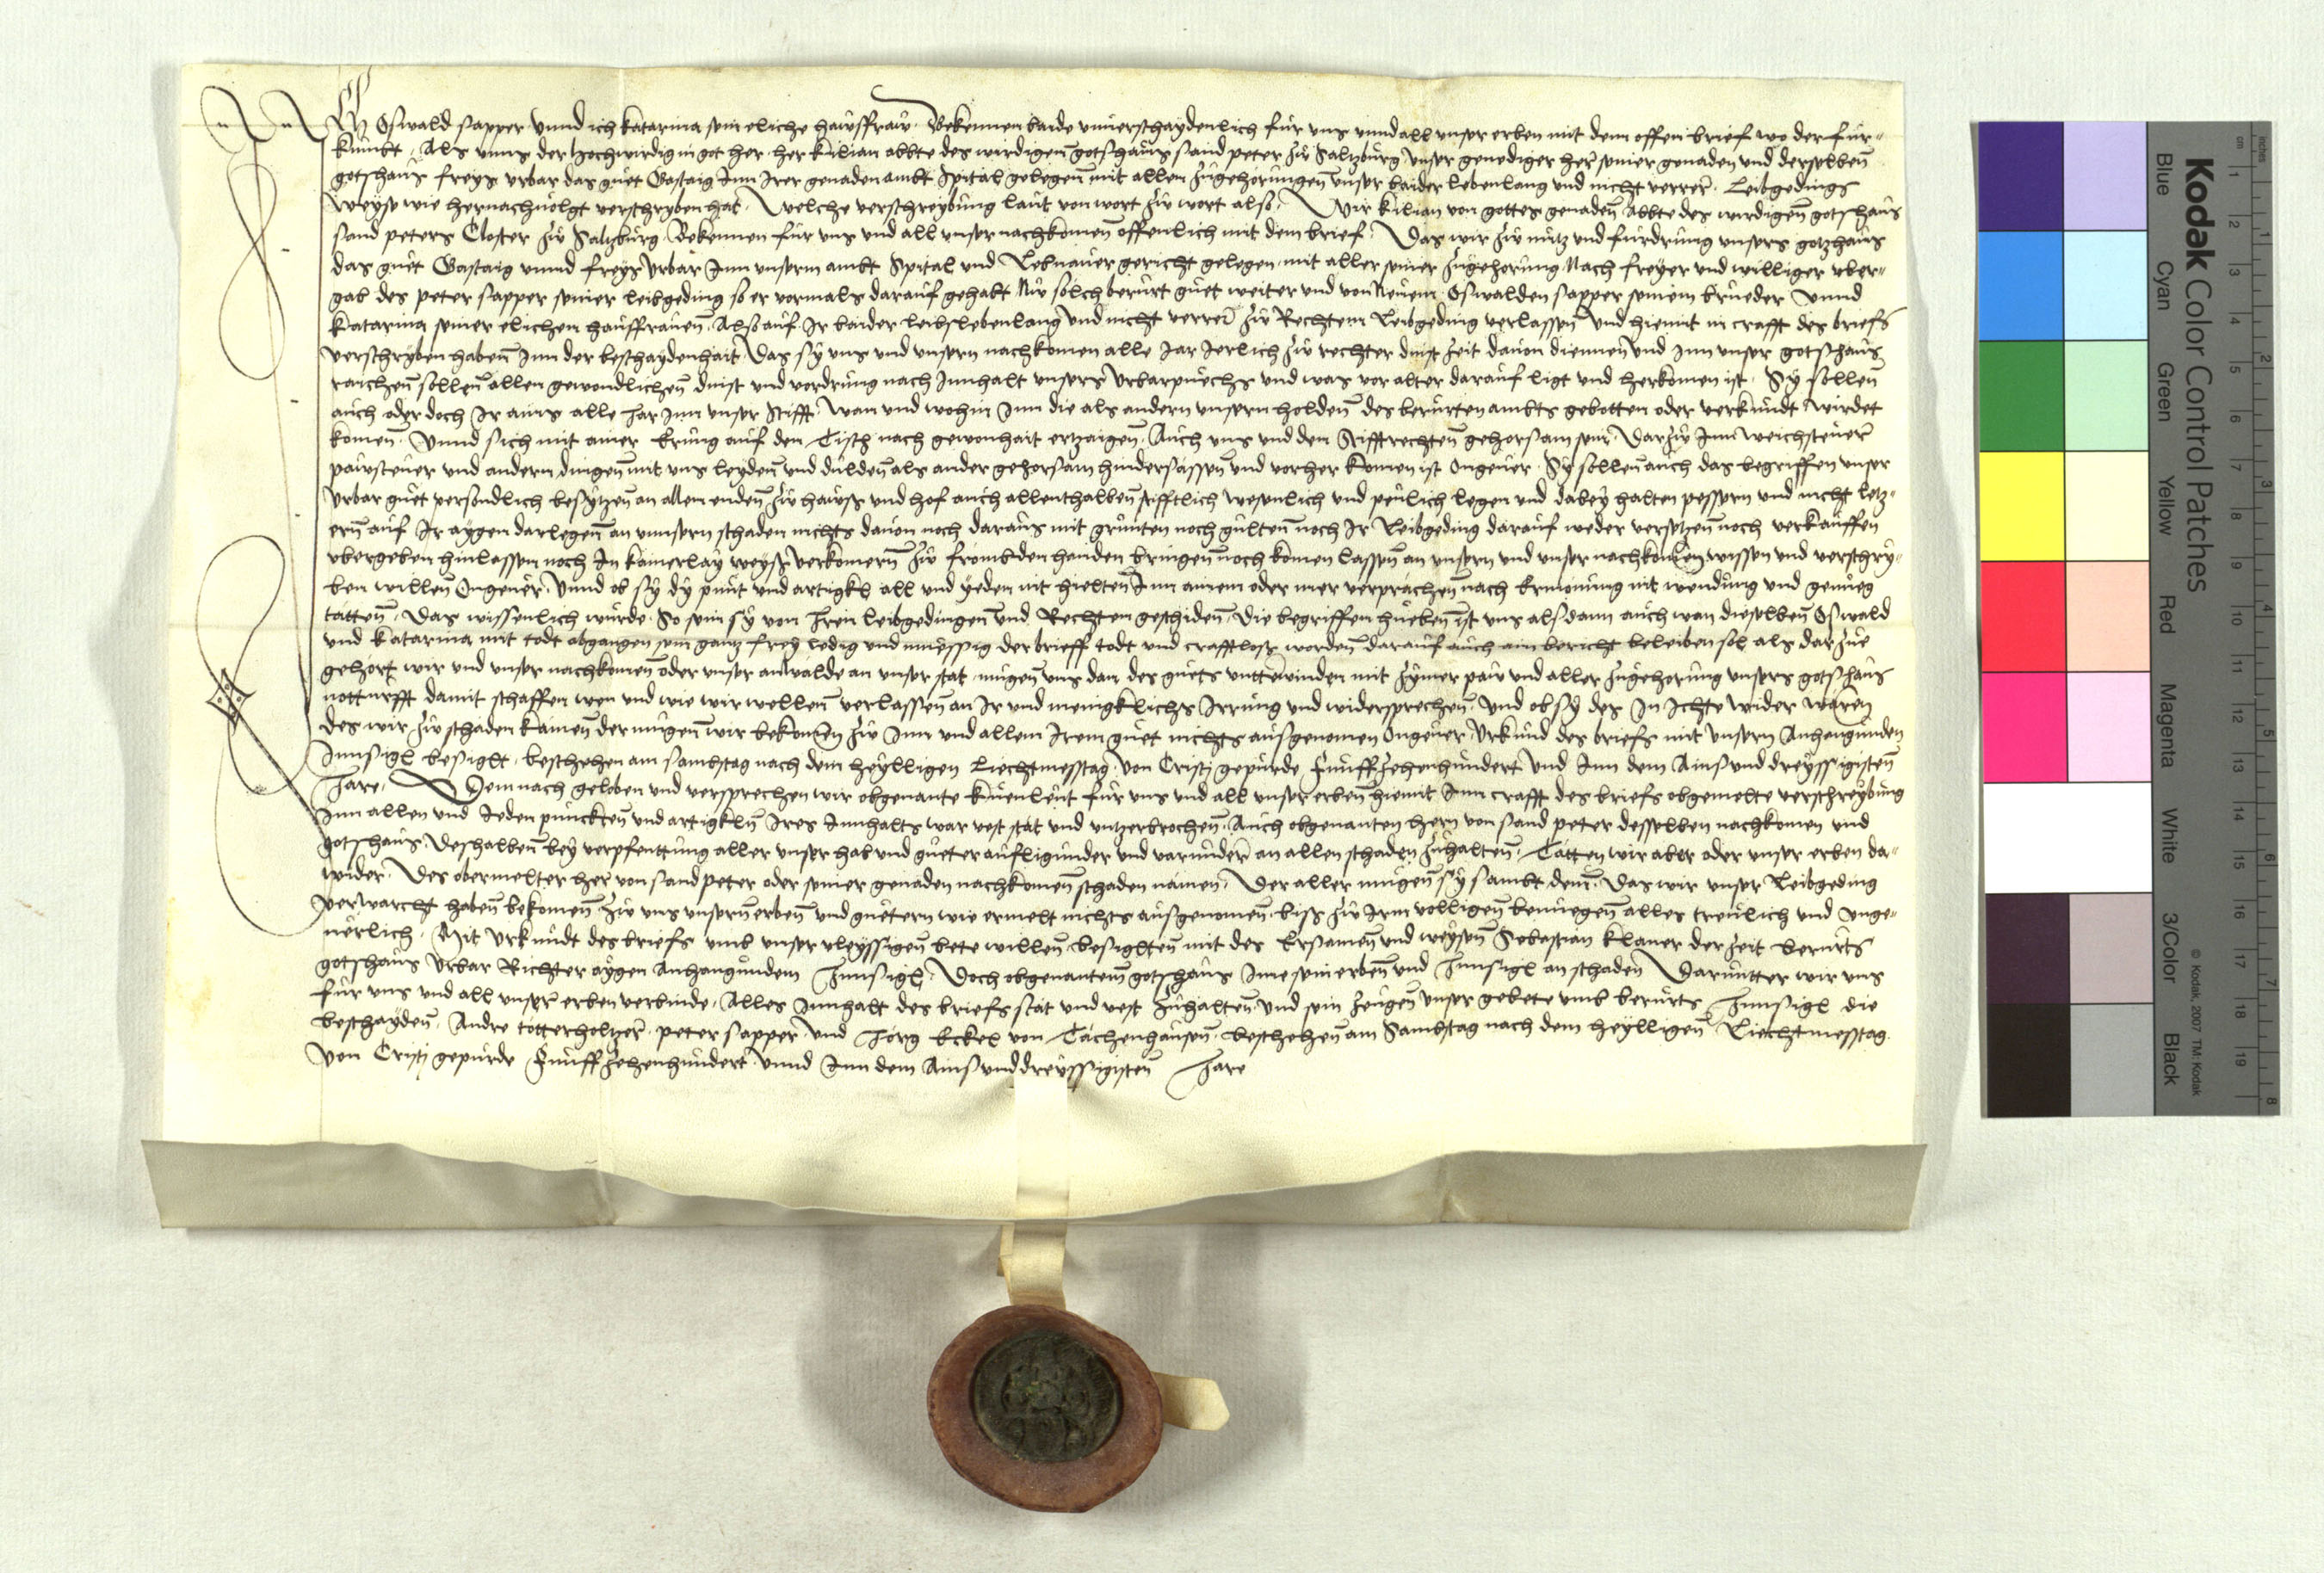 Ich Oswald Sapper vnnd ich Katarina sein eliche hawsfraw Bekennen baide vnuerschaydenlich fur vns vnnd all vnser erben mit dem offen brief wo der fur-
kumbt. Als vnns der hochwirdig in got her her Kilian abbte des wirdigen gotshaus sand peter zw Saltzburg vnser genediger her seiner genaden vnd derselben
gotshaus freys vrbar das guet Gastaig Inn Irer genaden ambt Spital gelegen mit allen zugehorungen vnser baider lebenlang vnd nicht verrer. Leibgedings
weyse wie hernachuolgt verschryben hat. Welche verschreybung laut von wort zw wort also. Wir Kilian von gottes genaden Abbte des wirdigen gotshaus
sand peters Closter zw Saltzburg Bekennen fur vns vnd all vnser nachkomen offenlich mit dem brief. Das wir zw nutz vnd furdrung vnsers gotzhaus
das guet Gastaig vnnd freys vrbar Inn vnserm ambt Spital vnd Lebnawer gericht gelegen mit aller seiner zugehorung Nach freyer vnd williger vber-
gab des peter sapper seiner leibgeding so er vormals darauf gehabt Nw solch berurt guet weiter vnd von Neuem Oswalden sapper seinem brueder vnnd
Katarina seiner elichen hausfrauen. Also auf Ir baider leibslebenlang vnd nicht verrer zw Rechtem Leibgeding verlassen vnd hiemit in crafft des briefs
verschryben haben Inn der beschaydenhait Das sy vns vnd vnsern nachkomen alle Jar Jerlich zw rechter dinst zeit dauon diennen vnd Inn vnser gotshaus
raichen sollen allen gewondlichen dinst vnd vordrung nach Innhalt vnsers vrbarpuechs vnd was vor alter darauf ligt vnd herkomen ist. Sy sollen
auch oder doch Ir ains alle Jar Inn vnser Stifft. wan vnd wohin Inn die als andern vnsern holden des berurten ambts gebotten oder verkundt wirdet
komen. Vnnd sich mit ainer Erung auf den Tisch nach gewonhait ertzaigen. Auch vns vnd den Stifftrechten gehorsam sein. Darzw Inn weichsteuer
pawsteuer vnd andern dingen mit vns leyden vnd dulden als ander gehorsam hindersassen vnd vorher komen ist Ongeuer. Sy sollen auch das begriffen vnser
vrbar guet persondlich besytzen an allen enden zw hawss vnd hof auch allenthalben stifftlich wesenlich vnd peulich legen vnd dabey halten pessern vnd nicht letz-
ern auf Ir aygen darlegen an vnnsern schaden nichts dauon noch daraus mit grunten noch gulten noch Ir Leibgeding darauf weder versetzen noch verkauffen
vbergeben hinlassen noch In kainerlay weyss verkomern zw frombden handen bringen noch komen lassen an vnsern vnd vnser nachkomen wissen vnd verschry-
ben willen Ongeuer. Vnnd ob sy dy punt vnd artigkl all vnd yeden nit hielten Inn ainem oder mer verprachen nach Ermonung nit wendung vnd genueg
tätten. Das wissenlich wurde. So sein sy von Iren leibgedingen vnd Rechten geschiden. Die begriffen hueben ist vns alsdann auch wan dieselben Oswald
vnd Katarina mit todt abgangen sein gantz frey ledig vnd muessig der brieff todt vnd crafftloss worden darauf auch ain bericht beleiben sol als dar zue
gehort wir vnd vnser nachkomen oder vnser anwälde an vnser stat mugen vns dan des guets vntterwinden mit zymer paw vnd aller zugehorung vnsers gotshaus
notturfft damit schaffen wen vnd wie wir wellen verlassen an Ir vnd menigklichs Irrung vnd widersprechen. Vnd ob sy des In Ichte wider wären
des wir zw schaden kämen der mugen wir bekomen zw Inn vnd allem Irem guet nichts ausgenomen Ongeuer. Vrkund des briefs mit vnserm Anhangunden
Innsigl besiglt. beschehen am sambstag nach dem heylligen Liechtmesstag. Von Cristi gepurde Funffzehenhundert vnd Inn dem Ains vnd dreyssigisten
Jare. Demnach geloben vnd versprechen wir obgenante konleut fur vns vnd all vnser erben hiemit Inn crafft des briefs obgemelte verschreybung
Inn allen vnd Jeden punckten vnd artigkln Ires Innhalts war vest stät vnd vntzerbrochen. Auch obgenanten hern von sand peter desselben nachkomen vnd
gotshaus. Deshalben bey verpfenttung aller vnser hab vnd gueter aufligunder vnd varunder an allen schaden zuhalten. Tätten wir aber oder vnser erben da-
wider. Des obermelter her von sand peter oder seiner genaden nachkomen schaden nämen. Der aller mugen sy sambt dem. Das wir vnser Leibgeding
verwarcht haben bekomen zw vns vnsern erben vnd guetern wie ermelt nichts ausgenomen. biss zw Irm volligen benuegen alles treulich vnd vnge-
uerlich. Mit Vrkundt des briefs vmb vnser vleyssigen bete willen. besiglten mit des Ersamen vnd weysen Sebastian Klaner der zeit berurts
gotshaus Vrbar Richter aygen Anhangundem Innsigl. Doch obgenantem gotshaus Ime sein erben vnd Innsigl an schaden Daruntter wir vns
fur vns vnd all vnser erben verbinde. Alles Innhalt des briefs stät vnd vest zuhalten. Vnd sein zeugen vnser gebete vmb berurts Innsigl die
beschayden. Andre totterholtzer. peter sapper vnd Jorg Eckel von Tachenhausen. beschehen am Sambstag nach dem heylligen Liechtmesstag.
Von Cristi gepurde Funffzehenhundert vnnd Inn dem Ains vnd dreyssigisten Jare
Kodak Color Control Patches
Blue Cyan Green Yellow Red Magenta White 3/Color Black
© Kodak, 2007 TM: Kodak
cm 1 2 3 4 5 6 7 8 9 10 11 12 13 14 15 16 17 18 19
inches 1 2 3 4 5 6 7 8